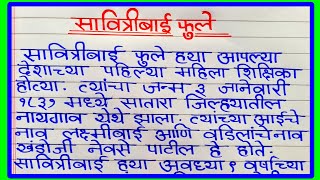 सावित्रीबाई फुले
सावित्रीबाई फुले ह्या आपल्या
देशाच्या पहिल्या महिला शिक्षिका
होत्या. त्यांचा जन्म ३ जानेवारी
१८३१ मध्ये सातारा जिल्ह्यातील
नायगाव येथे झाला. त्यांच्या आईचे
नाव लक्ष्मीबाई आणि वडिलांचे नाव
खंडोजी नेवसे पाटील हे होते.
सावित्रीबाई ह्या अवघ्या ९ वर्षाच्या